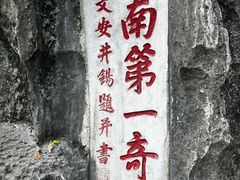 南第一奇
文安井錫題并書